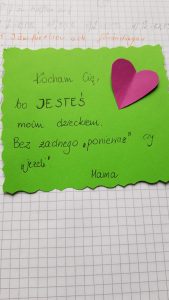 Kocham Cię,
bo JESTEŚ
moim dzieckiem.
Bez żadnego „ponieważ” czy
„jeżeli”
Mama